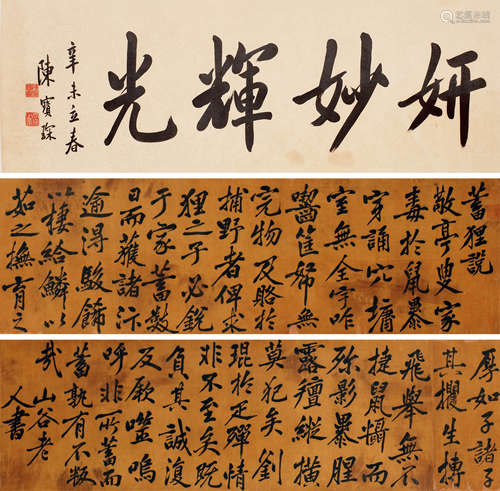 妍妙輝光
辛未立春
陳寶琛
蓄狸說
敬亭叟家
毒於鼠暴
穿誦穴墉
室無全宇咋
嚙筐帑無
完物及賂於
捕野者俾求
狸之子必銳
于家蓄數
日而獲諸汴
逾得駿飾
以棲給鱗以
茹之撫育之
厚如子諸子
其攫生搏
飛舉無不
捷鼠懾而
殄影暴腥
露羶縱橫
莫犯矣劉
琨於走殫情
非不至矣既
負其誠復
反厥噬嗚
呼非所蓄而
蓄孰有不叛
哉 山谷老
人書